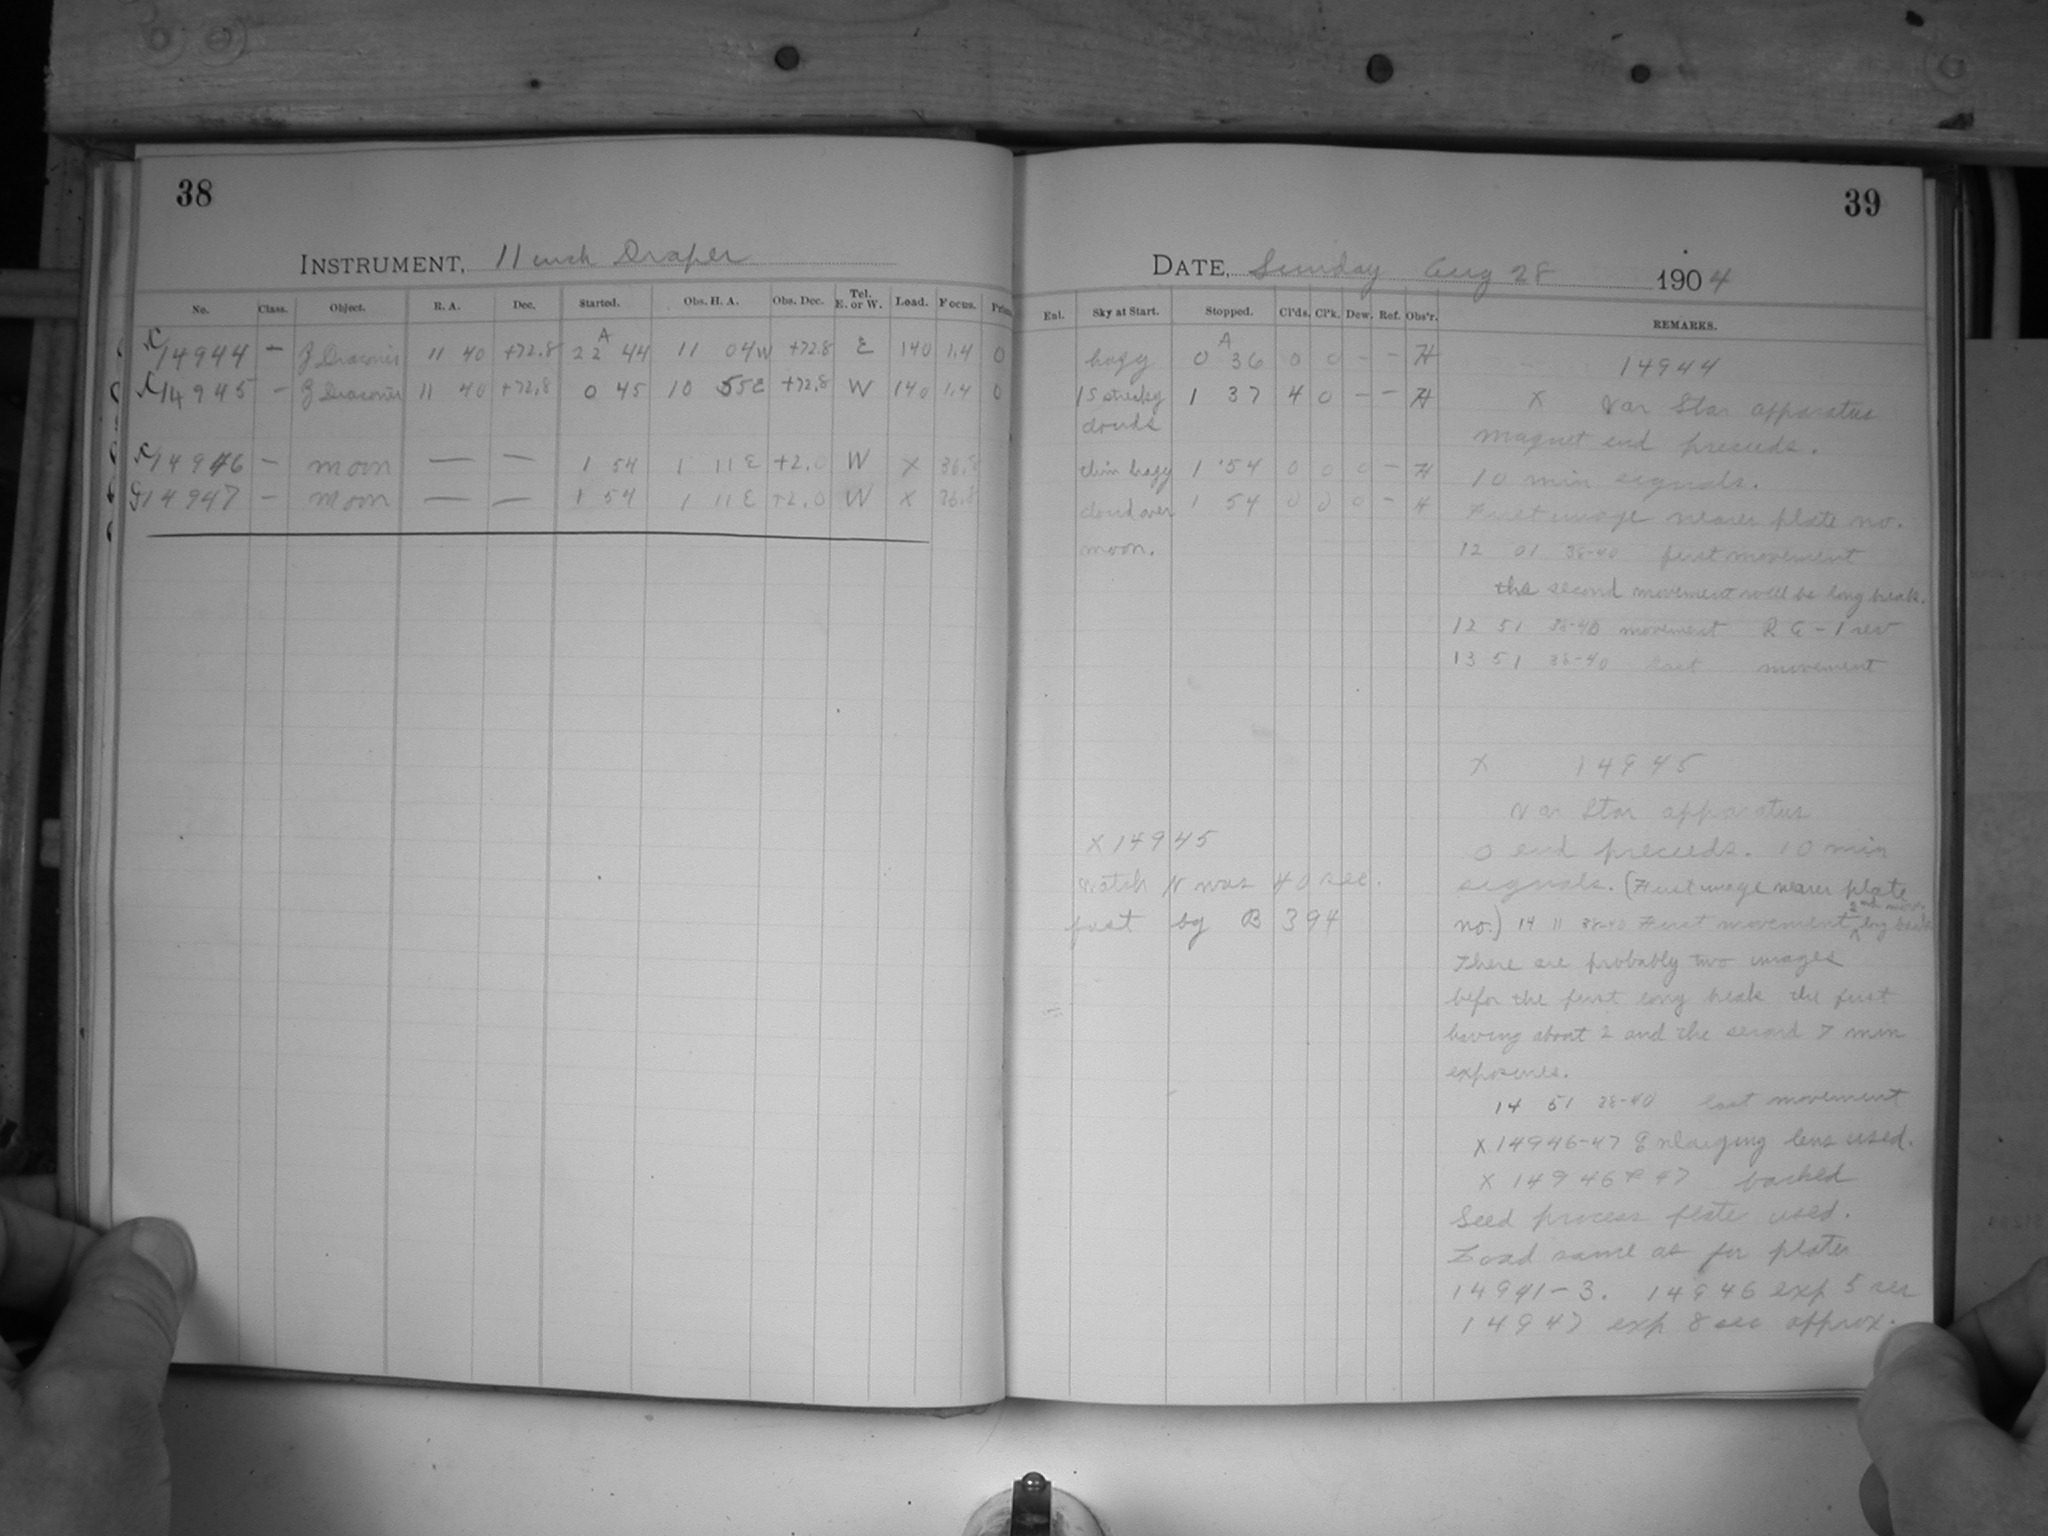 38
INSTRUMENT, 11 inch Draper
No. Class. Object. R. A. Dec. Started. Obs. H. A. Obs. Dec. Tel. E. or W. Load. Focus.
14944 — Z Draconis 11 40 +72.8 22 44 11 04W +72.8 E 140 1.4 0
14945 — Z Draconis 11 40 +72.8 0 45 10 55E +72.8 W 140 1.4 0
14946 — moon — — 1 54 1 11E +2.0 W X 36.8
14947 — moon — — 1 54 1 11E +2.0 W X 36.8
39
DATE, Sunday Aug 28 1904
Enl. Sky at Start. Stopped. Cl'ds. Cl'k. Dew. Ref. Obs'r. REMARKS.
hazy 0 36 0 0 – – H
15 streaky 1 37 4 0 – – H
clouds
thin hazy 1 54 0 0 0 – H
cloud over 1 54 0 0 0 – H
moon.
X 14945
Watch N was 40 sec.
fast by B 394
14944
X Var Star apparatus
magnet end preceeds.
10 min signals.
First image nearer plate no.
12 01 38-40 first movement
the second movement will be long break.
12 51 38-40 movement R G – 1 rev
13 51 38-40 last movement
X 14945
Var Star apparatus
0 end preceeds. 10 min
signals. (First image nearer plate
no.) 14 11 38-40 First movement 2nd mov. long break
There are probably two images
befor the first long break the first
having about 2 and the second 7 min
exposures.
14 51 38-40 last movement
X 14946-47 Enlarging lens used.
X 14946 & 47 backed
Seed process plate used.
Load same as for plates
14941-3. 14946 exp 5 sec
14947 exp 8 sec approx.